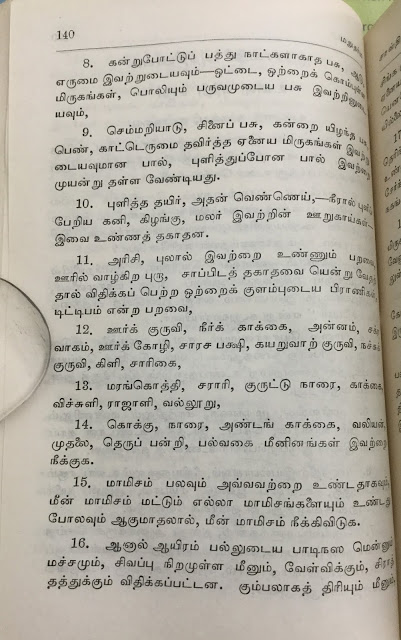 140
8. கன்றுபோட்டுப் பத்து நாட்களாகாத பசு,
எருமை இவற்றுடையவும்—ஒட்டை, ஒற்றைக்
மிருகங்கள், பொலியும் பருவமுடைய பசு
யவும்,
9. செம்மறியாடு, சினைப் பசு, கன்றை யிழந்த
பெண், காட்டெருமை தவிர்த்த ஏனைய மிருகங்கள்
டையவுமான பால், புளித்துப்போன பால் இவற்றை
முயன்று தள்ள வேண்டியது.
10. புளித்த தயிர், அதன் வெண்ணெய்,—நீரால்
பேறிய கனி, கிழங்கு, மலர் இவற்றின் ஊறுகாய்கள்—
இவை உண்ணத் தகாதன.
11. அரிசி, புலால் இவற்றை உண்ணும்
ஊரில் வாழ்கிற புரு, சாப்பிடத் தகாதவை யென்று
தால் விதிக்கப் பெற்ற ஒற்றைக் குளம்புடைய
டிட்டிபம் என்ற பறவை,
12. ஊர்க் குருவி, நீர்க் காக்கை, அன்னம்,
வாகம், ஊர்க் கோழி, சாரச பக்ஷி, கயறுவாற் குருவி,
குருவி, கிளி, சாரிகை,
13. மரங்கொத்தி, சராரி, குருட்டு நாரை, காக்கை,
விச்சுளி, ராஜாளி, வல்லூறு,
14. கொக்கு, நாரை, அண்டங் காக்கை, வலியன்,
முதலை, தெருப் பன்றி, பல்வகை மீனினங்கள் இவற்றை
நீக்குக.
15. மாமிசம் பலவும் அவ்வவற்றை உண்டதாகவும்,
மீன் மாமிசம் மட்டும் எல்லா மாமிசங்களையும்
போலவும் ஆகுமாதலால், மீன் மாமிசம் நீக்கிவிடுக.
16. ஆனால் ஆயிரம் பல்லுடைய பாடிநஸ
மச்சமும், சிவப்பு நிறமுள்ள மீனும், வேள்விக்கும்,
தத்துக்கும் விதிக்கப்பட்டன. கும்பலாகத் திரியும்